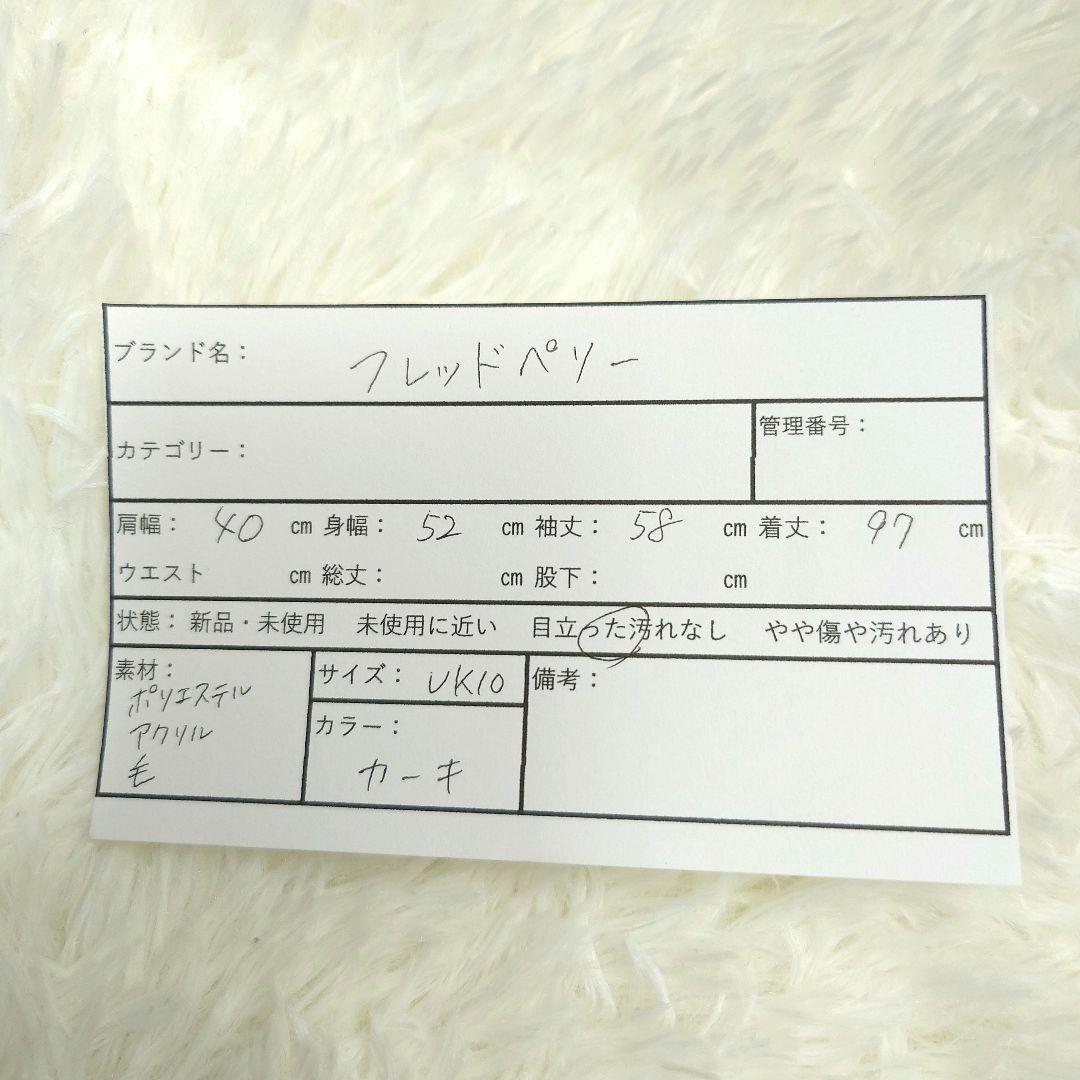 ブランド名： フレッドペリー
カテゴリー：
管理番号：
肩幅： 40 ㎝ 身幅： 52 ㎝ 袖丈： 58 ㎝ 着丈： 97 ㎝
ウエスト ㎝ 総丈： ㎝ 股下： ㎝
状態： 新品・未使用 未使用に近い 目立った汚れなし やや傷や汚れあり
素材：
ポリエステル
アクリル
毛
サイズ： UK10
カラー：
カーキ
備考：